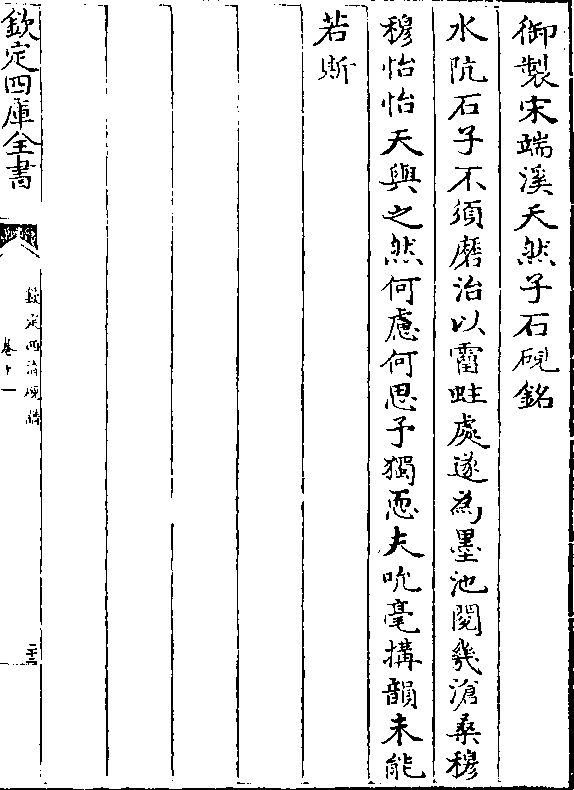 御製宋端溪天然子石硯銘
水阬石子不須磨治以霤蛀處遂為墨池閱幾滄桑穆
穆怡怡天與之然何慮何思予獨恧夫吮毫搆韻未能
若斯
欽定四庫全書
欽定西清硯譜
卷十一
二十三